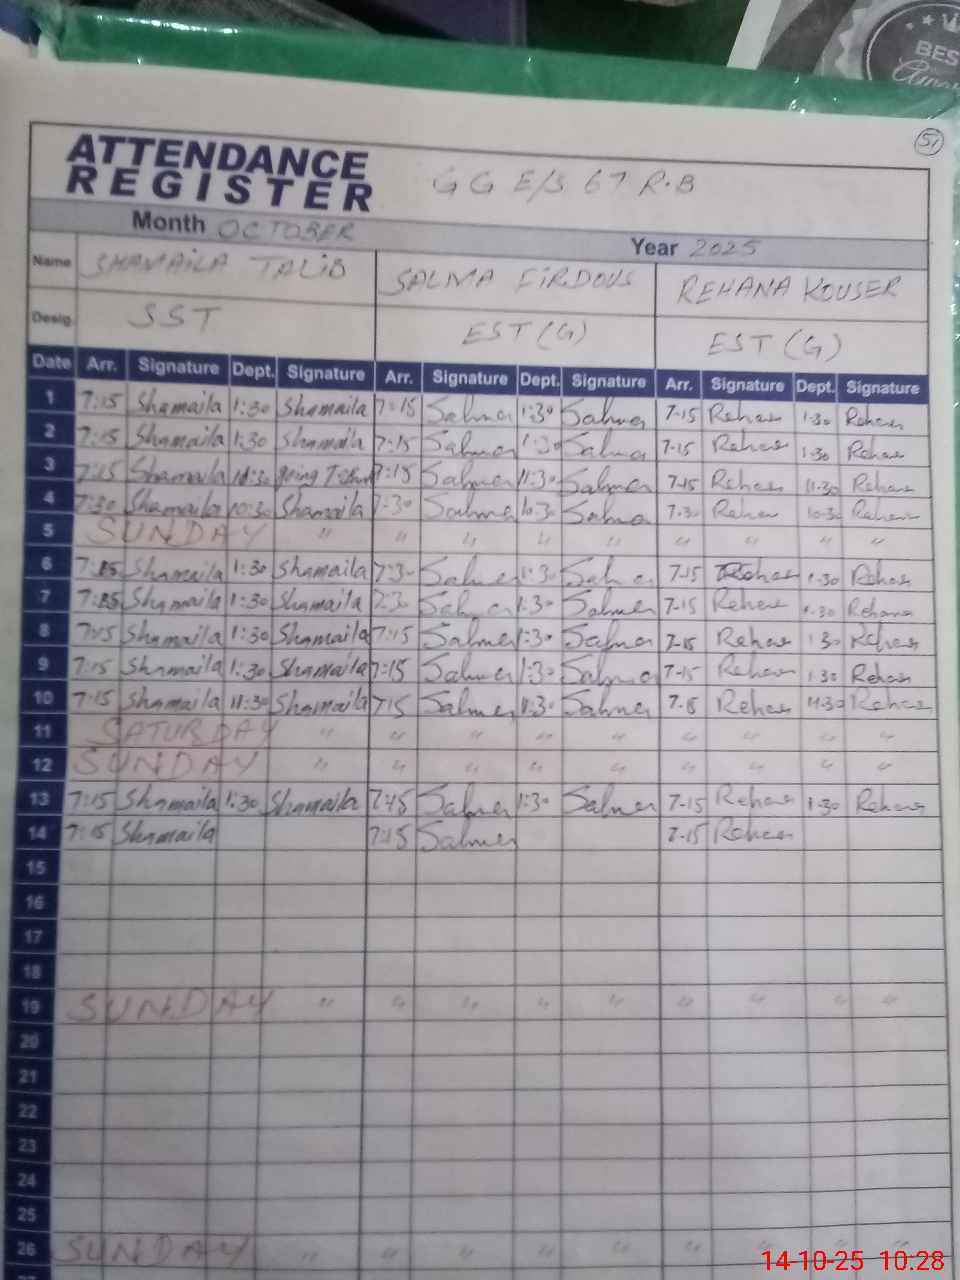 BES
51
ATTENDANCE
REGISTER
GG E/S 67 R.B
Month OCTOBER Year 2025
Name SHAMAILA TALIB SALMA FIRDOUS REHANA KOUSER
Desig. SST EST (G) EST (G)
Date Arr. Signature Dept. Signature Arr. Signature Dept. Signature Arr. Signature Dept. Signature
1 7:15 Shamaila 1:30 Shamaila 7:15 Salma 1:30 Salma 7-15 Rehana 1-30 Rehana
2 7:15 Shamaila 1:30 Shamaila 7:15 Salma 1:30 Salma 7-15 Rehana 1-30 Rehana
3 7:15 Shamaila 7:15 Salma 11:30 Salma 7-15 Rehana 11-30 Rehana
4 7:30 Shamaila 10:30 Shamaila 7:30 Salma 10:30 Salma 7-30 Rehana 10-30 Rehana
5 SUNDAY " " " " " " " " "
6 7:15 Shamaila 1:30 Shamaila Salma 1:30 Salma 7-15 Rehana 1-30 Rehana
7 7:15 Shamaila 1:30 Shamaila Salma 1:30 Salma 7-15 Rehana 1-30 Rehana
8 7:15 Shamaila 1:30 Shamaila 7:15 Salma 1:30 Salma 7-15 Rehana 1 30 Rehana
9 7:15 Shamaila 1:30 Shamaila 7:15 Salma 1:30 Salma 7-15 Rehana 1 30 Rehana
10 7:15 Shamaila 11:30 Shamaila 7:15 Salma 11:30 Salma 7-15 Rehana 11-30 Rehana
11 SATURDAY " " " " " " " " "
12 SUNDAY " " " " " " " " "
13 7:15 Shamaila 1:30 Shamaila 7:15 Salma 1:30 Salma 7-15 Rehana 1-30 Rehana
14 7:15 Shamaila 7:15 Salma 7-15 Rehana
15
16
17
18
19 SUNDAY " " " " " " " " "
20
21
22
23
24
25
26 SUNDAY " " " " " " "
14-10-25 10.28